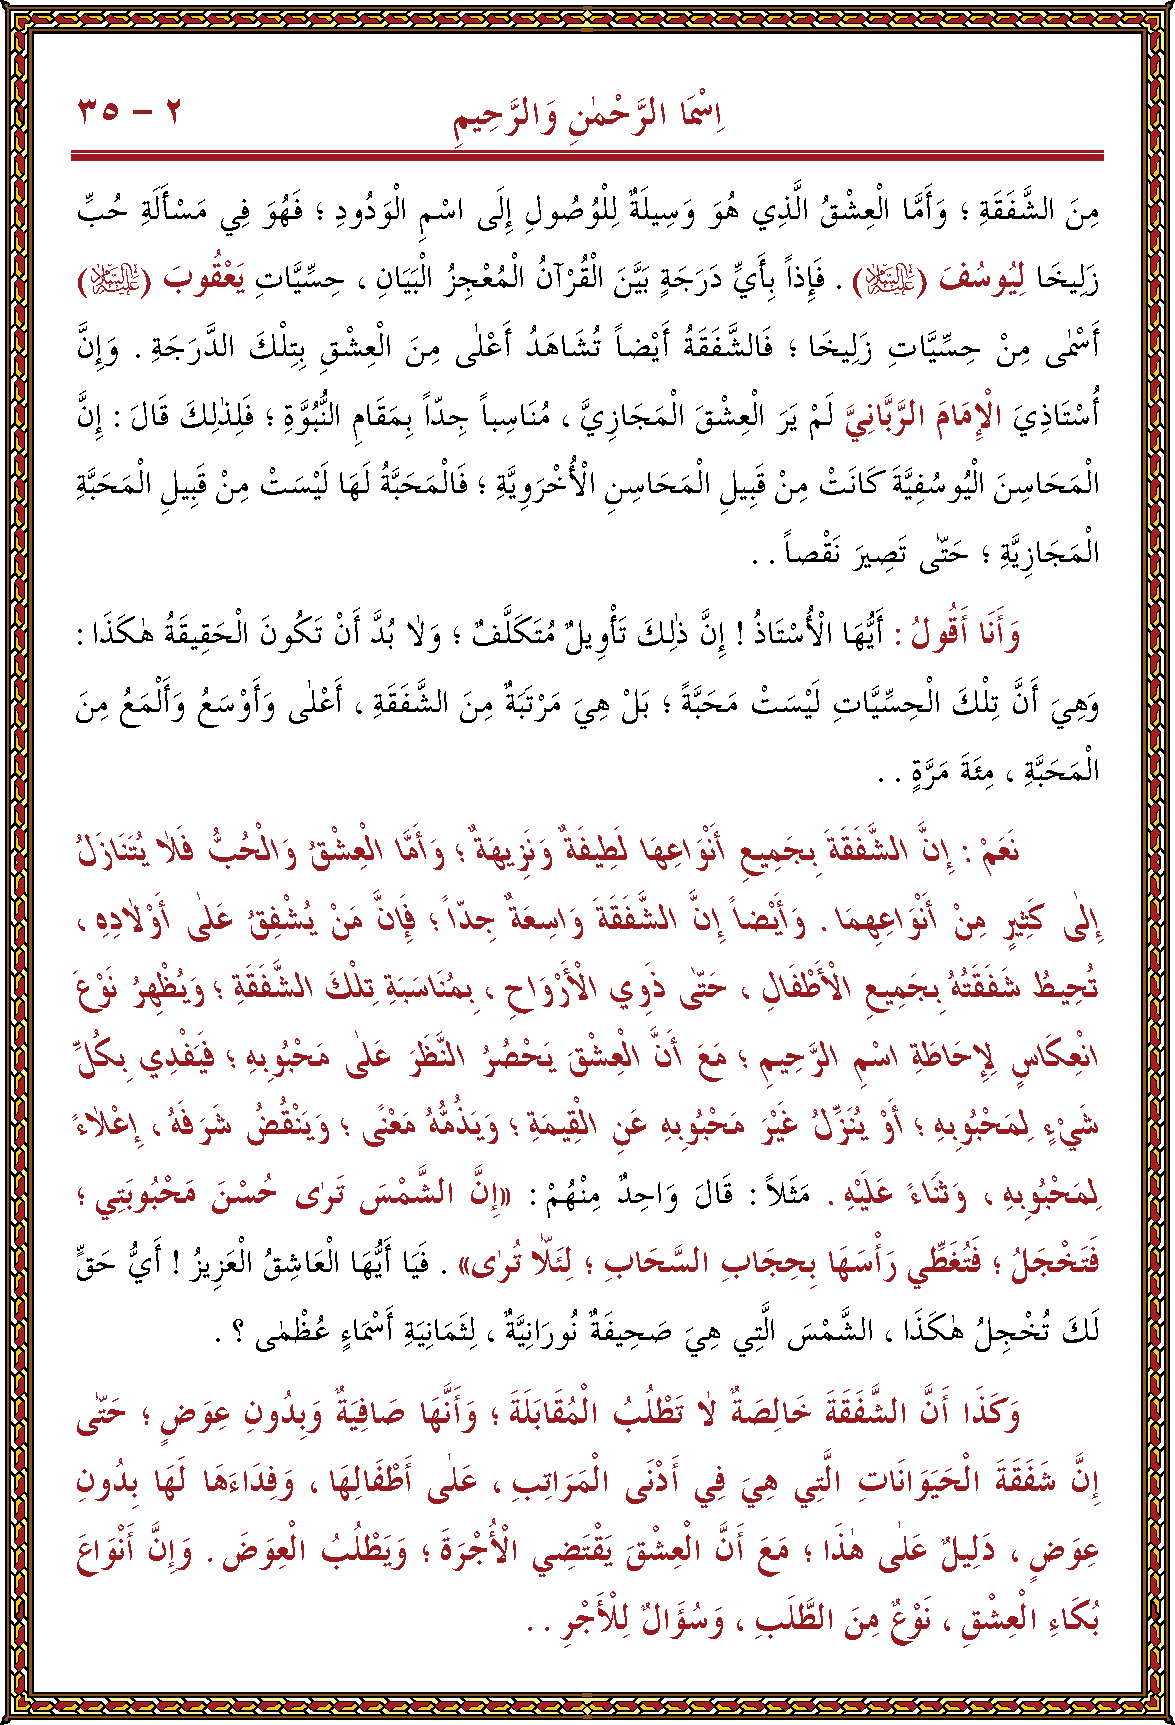 اِسْمَا الرَّحْمٰنِ وَالرَّحِيمِ ٢ – ٣٥
مِنَ الشَّفَقَةِ ؛ وَأَمَّا الْعِشْقُ الَّذِي هُوَ وَسِيلَةٌ لِلْوُصُولِ إِلَى اسْمِ الْوَدُودِ ؛ فَهُوَ فِي مَسْأَلَةِ حُبِّ
زَلِيخَا لِيُوسُفَ (عليه السلام) . فَإِذاً بِأَيِّ دَرَجَةٍ بَيَّنَ الْقُرْآنُ الْمُعْجِزُ الْبَيَانِ ، حِسِّيَّاتِ يَعْقُوبَ (عليه السلام)
أَسْمٰى مِنْ حِسِّيَّاتِ زَلِيخَا ؛ فَالشَّفَقَةُ أَيْضاً تُشَاهَدُ أَعْلٰى مِنَ الْعِشْقِ بِتِلْكَ الدَّرَجَةِ . وَإِنَّ
أُسْتَاذِيَ الْإِمَامَ الرَّبَّانِيَّ لَمْ يَرَ الْعِشْقَ الْمَجَازِيَّ ، مُنَاسِباً جِدّاً بِمَقَامِ النُّبُوَّةِ ؛ فَلِذٰلِكَ قَالَ : إِنَّ
الْمَحَاسِنَ الْيُوسُفِيَّةَ كَانَتْ مِنْ قَبِيلِ الْمَحَاسِنِ الْأُخْرَوِيَّةِ ؛ فَالْمَحَبَّةُ لَهَا لَيْسَتْ مِنْ قَبِيلِ الْمَحَبَّةِ
الْمَجَازِيَّةِ ؛ حَتّٰى تَصِيرَ نَقْصاً . .
وَأَنَا أَقُولُ : أَيُّهَا الْأُسْتَاذُ ! إِنَّ ذٰلِكَ تَأْوِيلٌ مُتَكَلَّفٌ ؛ وَلَا بُدَّ أَنْ تَكُونَ الْحَقِيقَةُ هٰكَذَا :
وَهِيَ أَنَّ تِلْكَ الْحِسِّيَّاتِ لَيْسَتْ مَحَبَّةً ؛ بَلْ هِيَ مَرْتَبَةٌ مِنَ الشَّفَقَةِ ، أَعْلٰى وَأَوْسَعُ وَأَلْمَعُ مِنَ
الْمَحَبَّةِ ، مِئَةَ مَرَّةٍ . .
نَعَمْ : إِنَّ الشَّفَقَةَ بِجَمِيعِ أَنْوَاعِهَا لَطِيفَةٌ وَنَزِيهَةٌ ؛ وَأَمَّا الْعِشْقُ وَالْحُبُّ فَلَا يُتَنَازَلُ
إِلٰى كَثِيرٍ مِنْ أَنْوَاعِهِمَا . وَأَيْضاً إِنَّ الشَّفَقَةَ وَاسِعَةٌ جِدّاً ؛ فَإِنَّ مَنْ يُشْفِقُ عَلٰى أَوْلَادِهِ ،
تُحِيطُ شَفَقَتُهُ بِجَمِيعِ الْأَطْفَالِ ، حَتّٰى ذَوِي الْأَرْوَاحِ ، بِمُنَاسَبَةِ تِلْكَ الشَّفَقَةِ ؛ وَيُظْهِرُ نَوْعَ
انْعِكَاسٍ لِإِحَاطَةِ اسْمِ الرَّحِيمِ ؛ مَعَ أَنَّ الْعِشْقَ يَحْصُرُ النَّظَرَ عَلٰى مَحْبُوبِهِ ؛ فَيَفْدِي بِكُلِّ
شَيْءٍ لِمَحْبُوبِهِ ؛ أَوْ يُنَزِّلُ غَيْرَ مَحْبُوبِهِ عَنِ الْقِيمَةِ ؛ وَيَذُمُّهُ مَعْنًى ؛ وَيَنْقُضُ شَرَفَهُ ، إِعْلَاءً
لِمَحْبُوبِهِ ، وَثَنَاءً عَلَيْهِ . مَثَلاً : قَالَ وَاحِدٌ مِنْهُمْ : «إِنَّ الشَّمْسَ تَرٰى حُسْنَ مَحْبُوبَتِي ؛
فَتَخْجَلُ ؛ فَتُغَطِّي رَأْسَهَا بِحِجَابِ السَّحَابِ ؛ لِئَلَّا تُرٰى» . فَيَا أَيُّهَا الْعَاشِقُ الْعَزِيزُ ! أَيُّ حَقٍّ
لَكَ تُخْجِلُ هٰكَذَا ، الشَّمْسَ الَّتِي هِيَ صَحِيفَةٌ نُورَانِيَّةٌ ، لِثَمَانِيَةِ أَسْمَاءٍ عُظْمٰى ؟ .
وَكَذَا أَنَّ الشَّفَقَةَ خَالِصَةٌ لَا تَطْلُبُ الْمُقَابَلَةَ ؛ وَأَنَّهَا صَافِيَةٌ وَبِدُونِ عِوَضٍ ؛ حَتّٰى
إِنَّ شَفَقَةَ الْحَيَوَانَاتِ الَّتِي هِيَ فِي أَدْنَى الْمَرَاتِبِ ، عَلٰى أَطْفَالِهَا ، وَفِدَاءَهَا لَهَا بِدُونِ
عِوَضٍ ، دَلِيلٌ عَلٰى هٰذَا ؛ مَعَ أَنَّ الْعِشْقَ يَقْتَضِي الْأُجْرَةَ ؛ وَيَطْلُبُ الْعِوَضَ . وَإِنَّ أَنْوَاعَ
بُكَاءِ الْعِشْقِ ، نَوْعٌ مِنَ الطَّلَبِ ، وَسُؤَالٌ لِلْأَجْرِ . .